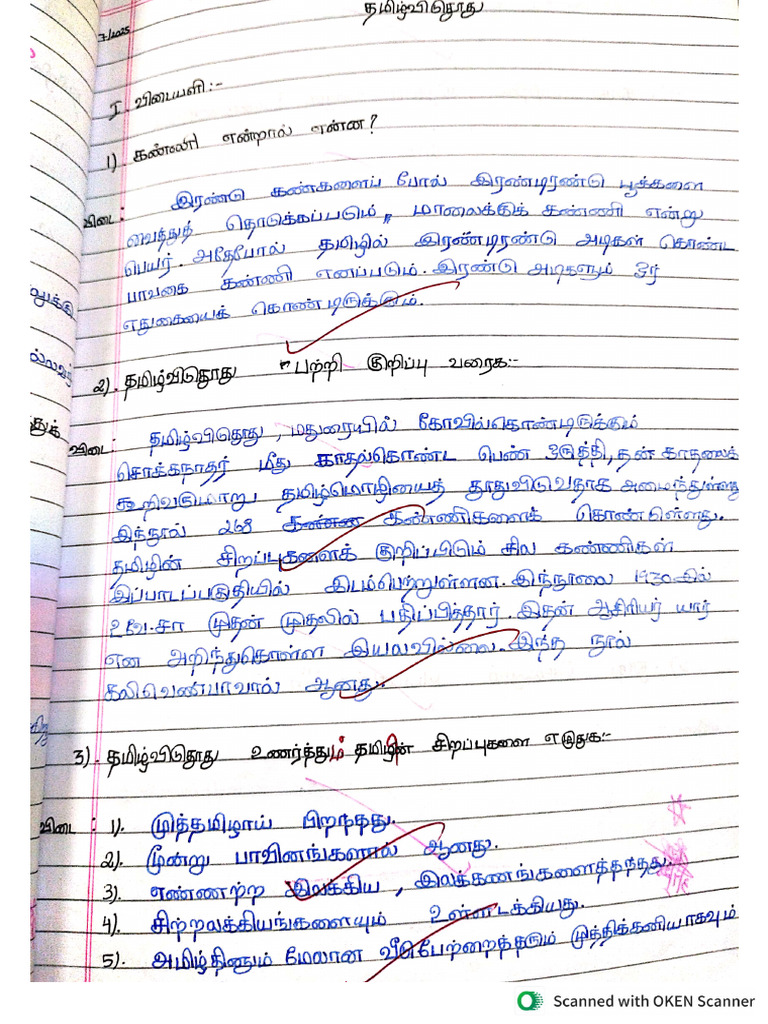 தமிழ்விடுதூது
7/2025
I. விடையளி:-
1) கண்ணி என்றால் என்ன?
விடை: இரண்டு கண்களைப் போல் இரண்டிரண்டு பூக்களை
வைத்துத் தொடுக்கப்படும் மாலைக்குக் கண்ணி என்று
பெயர். அதேபோல் தமிழில் இரண்டிரண்டு அடிகள் கொண்ட
பாவகை கண்ணி எனப்படும். இரண்டு அடிகளும் ஓர்
எதுகையைக் கொண்டிருக்கும்.
2). தமிழ்விடுதூது பற்றி குறிப்பு வரைக:-
விடை: தமிழ்விடுதூது, மதுரையில் கோவில்கொண்டிருக்கும்
சொக்கநாதர் மீது காதல்கொண்ட பெண் ஒருத்தி, தன் காதலைக்
கூறிவருமாறு தமிழ்மொழியைத் தூதுவிடுவதாக அமைந்துள்ளது
இந்நூல் 268 கண்ணிகளைக் கொண்டுள்ளது.
தமிழின் சிறப்புகளைக் குறிப்பிடும் சில கண்ணிகள்
இப்பாடப்பகுதியில் இடம்பெற்றுள்ளன. இந்நூலை 1930-இல்
உ.வே.சா முதன் முதலில் பதிப்பித்தார். இதன் ஆசிரியர் யார்
என அறிந்துகொள்ள இயலவில்லை. இந்த நூல்
கலிவெண்பாவால் ஆனது.
3). தமிழ்விடுதூது உணர்த்தும் தமிழின் சிறப்புகளை எழுதுக:-
விடை: 1). முத்தமிழாய் பிறந்தது.
2). மூன்று பாவினங்களால் ஆனது.
3). எண்ணற்ற இலக்கிய, இலக்கணங்களைத்தந்தது.
4). சிற்றலக்கியங்களையும் உள்ளடக்கியது.
5). அமிழ்தினும் மேலான வீடுபேற்றைத்தரும் முத்திக்கனியாகவும்
Scanned with OKEN Scanner